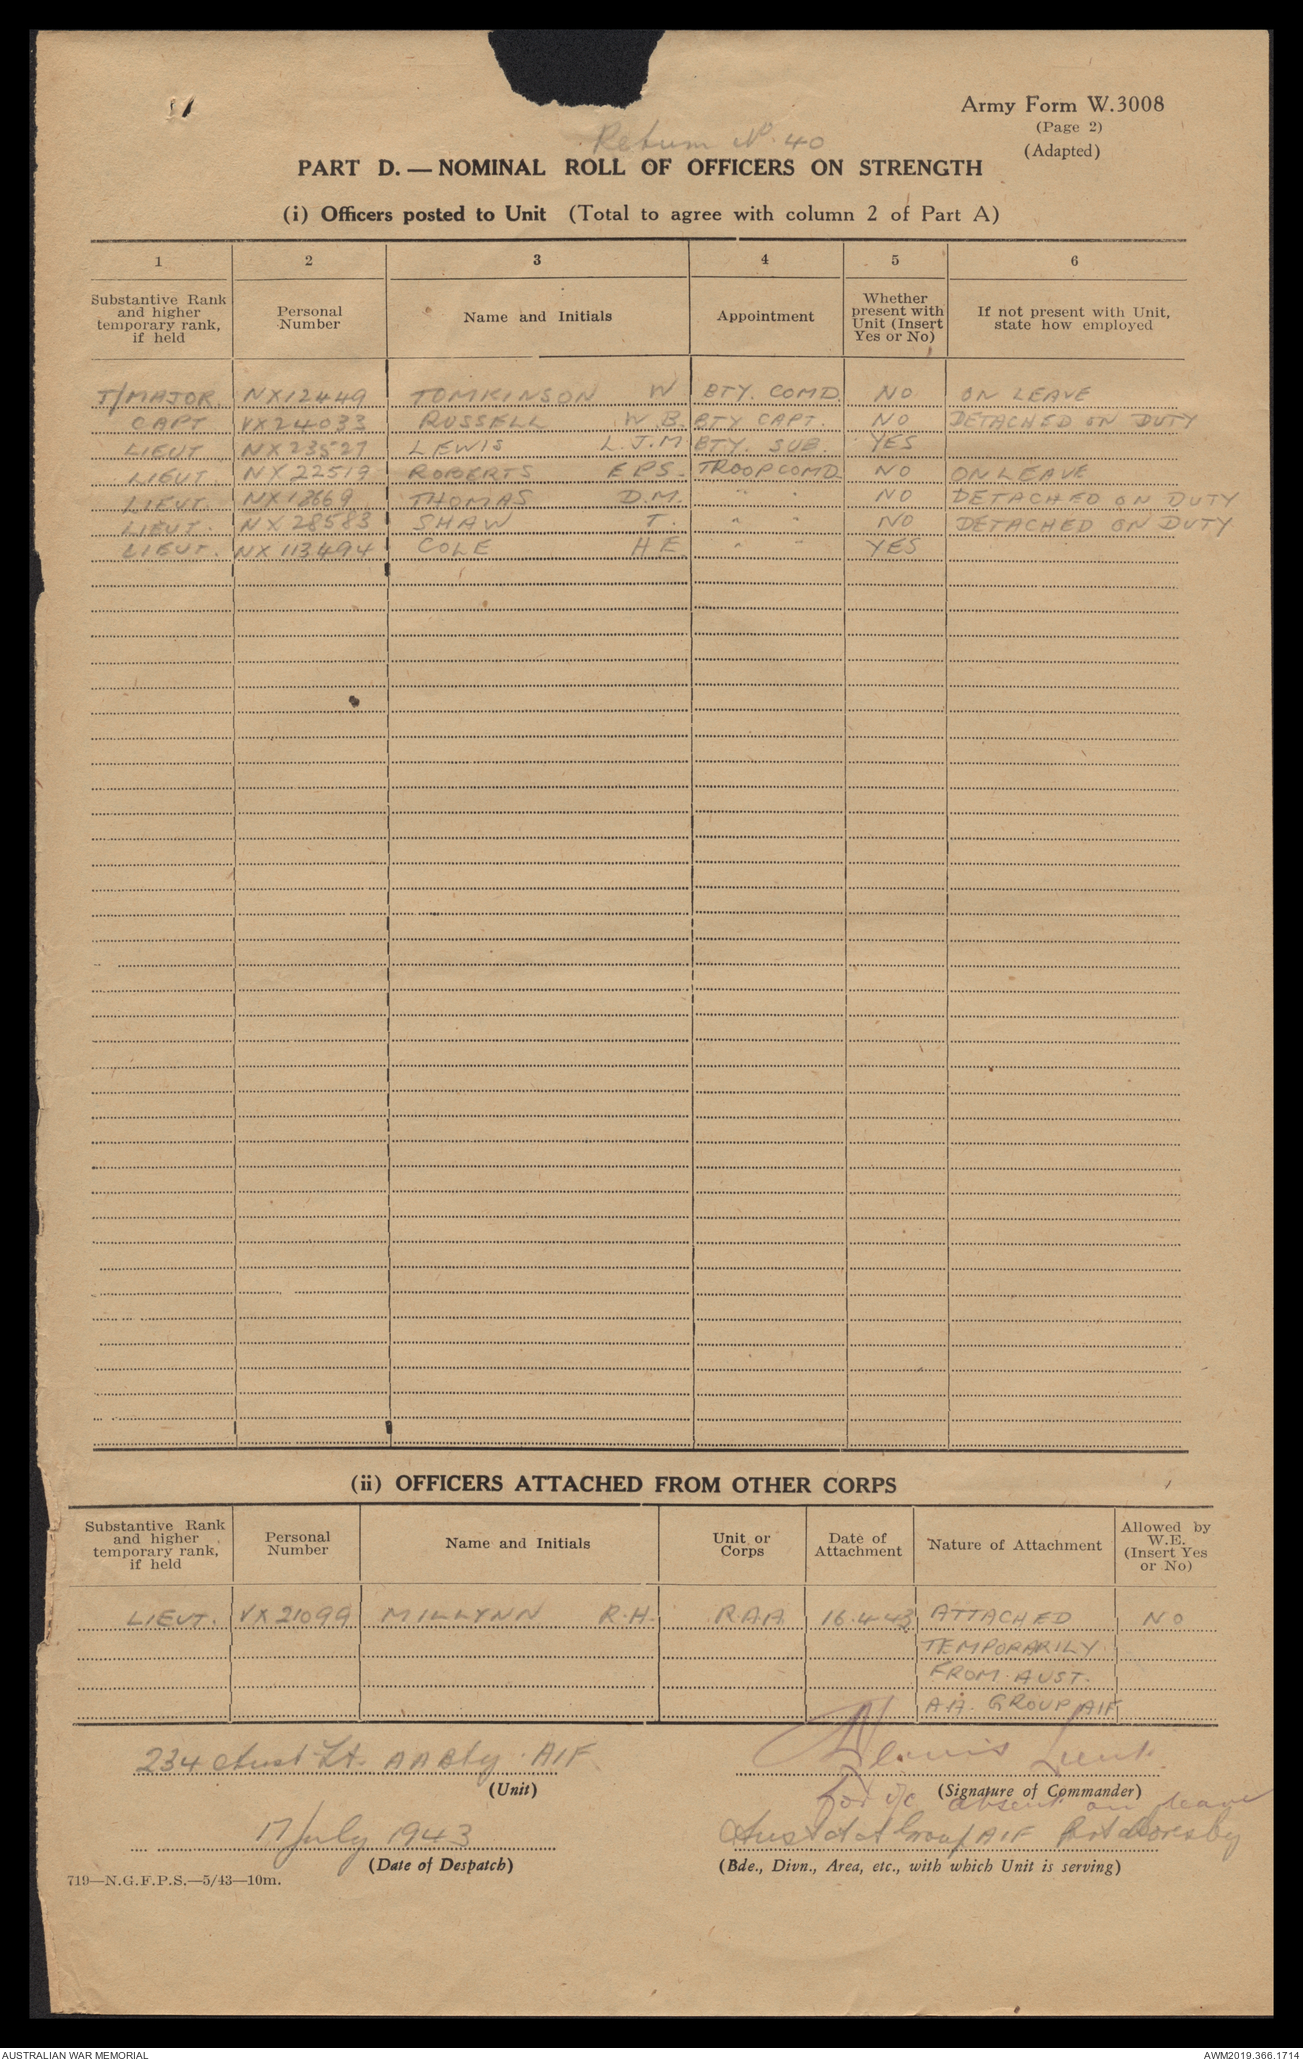 Army Form W.3008
(Page 2)
(Adapted)
Return No. 40
PART D. — NOMINAL ROLL OF OFFICERS ON STRENGTH
(i) Officers posted to Unit (Total to agree with column 2 of Part A)
1 2 3 4 5 6
Substantive Rank and higher temporary rank, if held Personal Number Name and Initials Appointment Whether present with Unit (Insert Yes or No) If not present with Unit, state how employed
T/MAJOR. NX12449 TOMKINSON W BTY. COMD. NO ON LEAVE
CAPT VX24033 RUSSELL W.B. BTY CAPT. NO DETACHED ON DUTY
LIEUT NX23527 LEWIS L.J.M BTY. SUB. YES
LIEUT NX22519 ROBERTS E.P.S. TROOP COMD NO ON LEAVE
LIEUT. NX18669 THOMAS D.M. " " NO DETACHED ON DUTY
LIEUT. NX28583 SHAW T. " " NO DETACHED ON DUTY
LIEUT. NX113494 COLE H.E. " " YES
(ii) OFFICERS ATTACHED FROM OTHER CORPS
Substantive Rank and higher temporary rank, if held Personal Number Name and Initials Unit or Corps Date of Attachment Nature of Attachment Allowed by W.E. (Insert Yes or No)
LIEUT. VX21099 MILLYNN R.H. R.A.A. 16.4.43 ATTACHED NO
TEMPORARILY
FROM AUST.
A.A. GROUP AIF
234 Aust Lt. AA Bty. AIF Lewis Lieut.
(Unit) (Signature of Commander)
for o/c absent on leave
17 July 1943 Aust AA Group AIF Port Moresby
(Date of Despatch) (Bde., Divn., Area, etc., with which Unit is serving)
719—N.G.F.P.S.—5/43—10m.
AUSTRALIAN WAR MEMORIAL AWM2019.366.1714